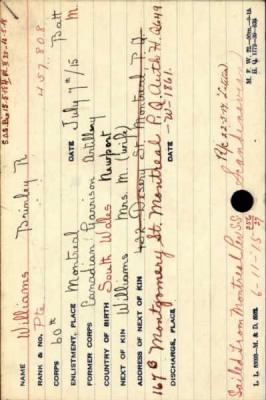 NAME Williams Brinley R
RANK & NO. Pte. 457,808
CORPS 60th Batt
ENLISTMENT, PLACE Montreal DATE July 7th/15 M
FORMER CORPS Canadian Garrison Artillery
COUNTRY OF BIRTH South Wales Newport
NEXT OF KIN Williams Mrs. M (wife)
ADDRESS OF NEXT OF KIN 422 St Montreal P.Q.
164B Montgomery St. Montreal P.Q. Auth H.Q.649
DISCHARGE, PLACE DATE -W-1861.
Sailed from Montreal Per SS Scandinavian
6-11-15